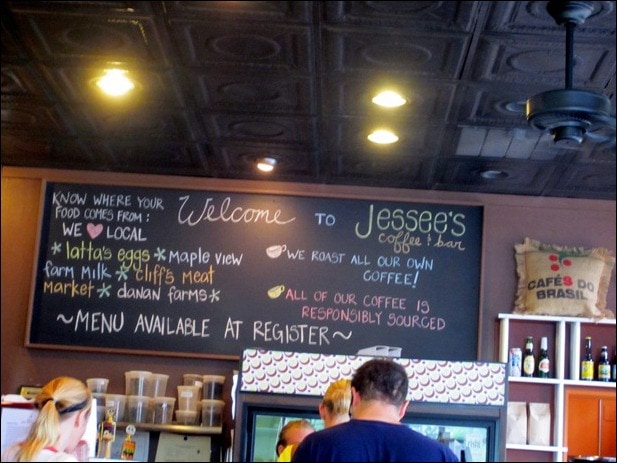 KNOW WHERE YOUR
FOOD COMES FROM:
WE LOCAL
*latta's eggs*maple view
farm milk*cliff's meat
market*danan farms*
Welcome TO Jessee's
coffee & bar
WE ROAST ALL OUR OWN
COFFEE!
ALL OF OUR COFFEE IS
RESPONSIBLY SOURCED
~MENU AVAILABLE AT REGISTER~
CAFÉS DO
BRASIL